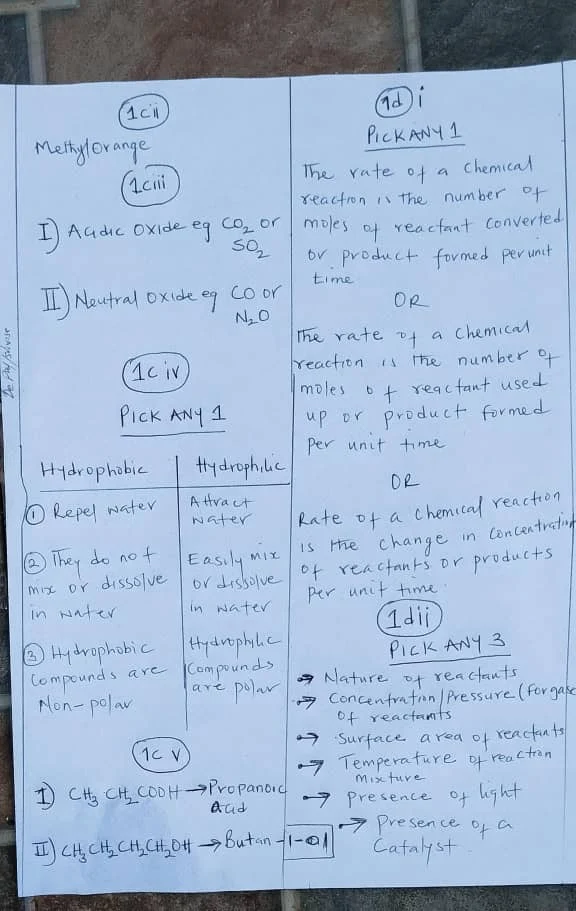 1cii
Methyl orange
1ciii
I) Acidic Oxide eg CO2 or
SO2
II) Neutral Oxide eg CO or
N2O
1c iv
PICK ANY 1
Hydrophobic | Hydrophilic
① Repel water | Attract
water
② They do not | Easily mix
mix or dissolve | or dissolve
in water | in water
③ Hydrophobic | Hydrophilic
Compounds are | Compounds
Non-polar | are polar
1c v
I) CH3 CH2 COOH → Propanoic
Acid
II) CH3CH2CH2CH2OH → Butan-1-ol
1d i
PICK ANY 1
The rate of a chemical
reaction is the number of
moles of reactant converted
or product formed per unit
time
OR
The rate of a chemical
reaction is the number of
moles of reactant used
up or product formed
Per unit time
OR
Rate of a chemical reaction
is the change in concentration
of reactants or products
Per unit time.
1dii
PICK ANY 3
→ Nature of reactants
→ Concentration/Pressure (for gase
of reactants
→ Surface area of reactants
→ Temperature of reaction
mixture
→ Presence of light
→ Presence of a
Catalyst.